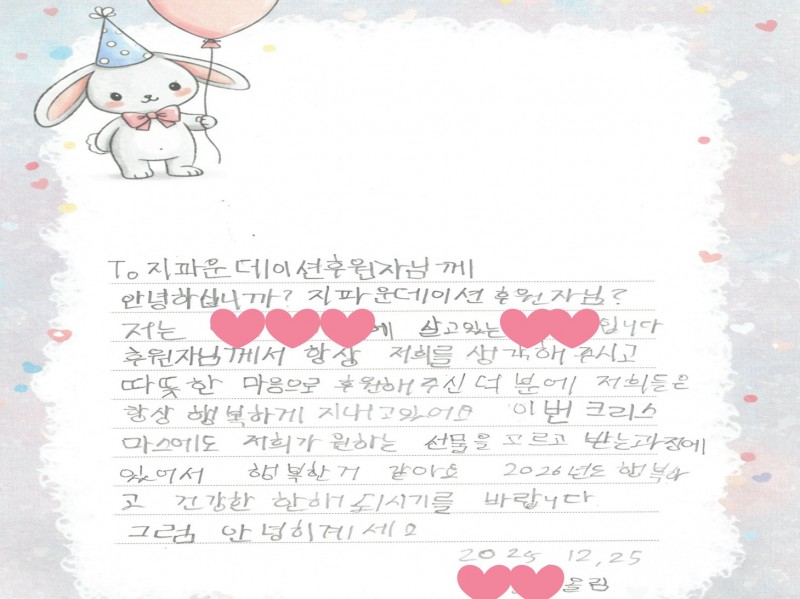 To 지파운데이션후원자님께
안녕하십니까? 지파운데이션 후원자님?
저는 에 살고있는 입니다
후원자님께서 항상 저희를 생각해 주시고
따뜻한 마음으로 후원해주신 덕분에 저희들은
항상 행복하게 지내고있어요 이번 크리스
마스에도 저희가 원하는 선물을 고르고 받는과정에
있어서 행복한거 같아요 2026년도 행복하
고 건강한 한해 되시기를 바랍니다
그럼 안녕히계세요
2025 12,25
올림